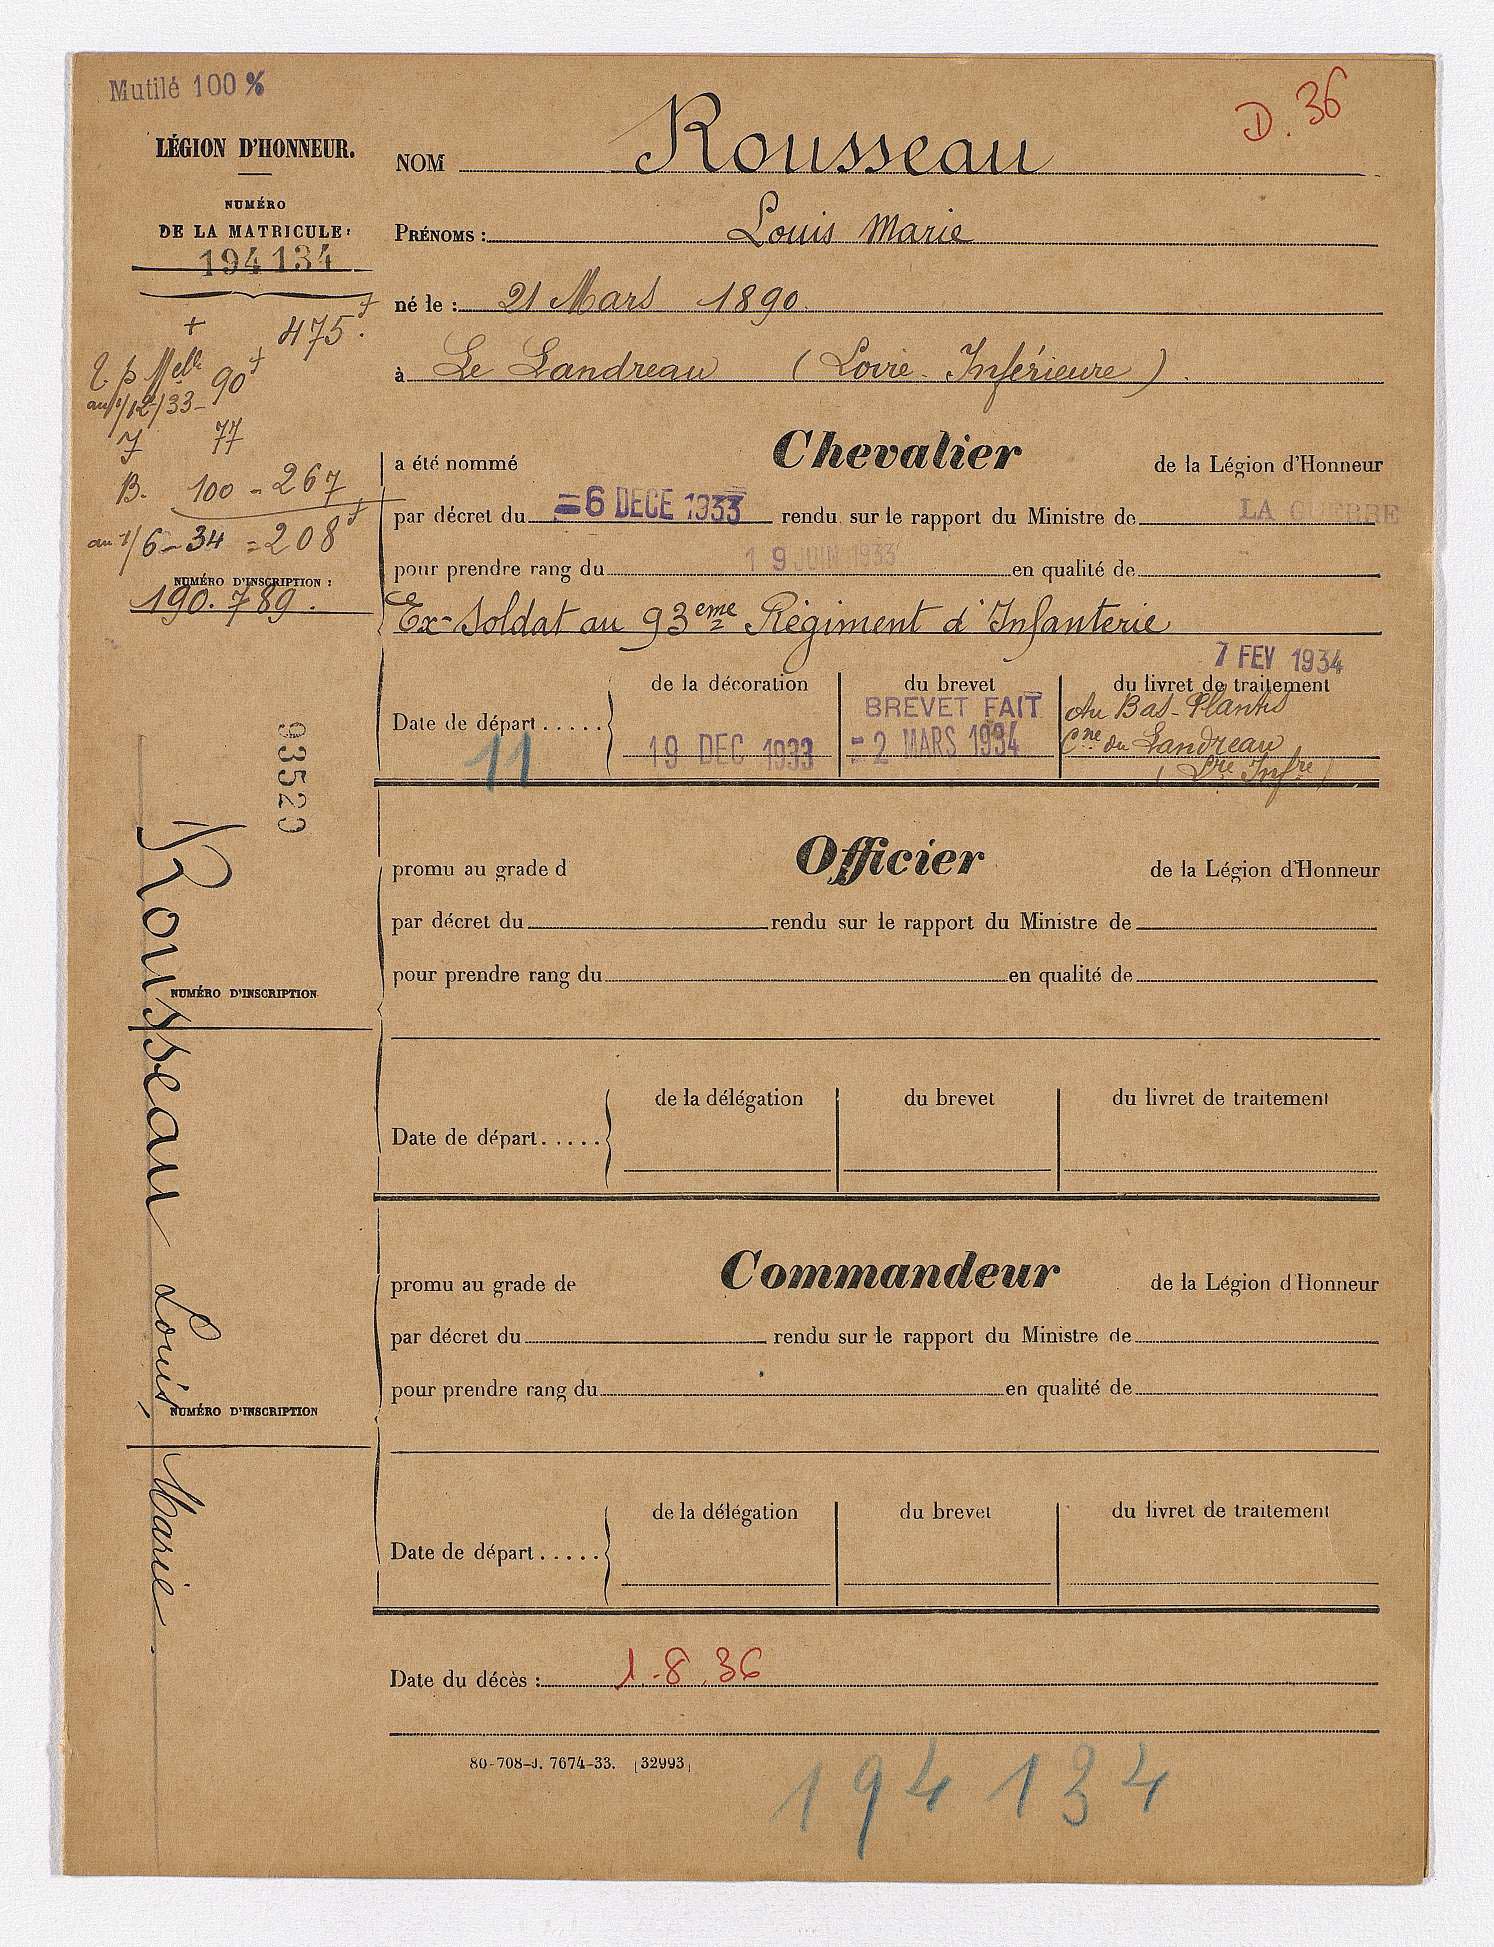 Mutilé 100 %
D. 36
LÉGION D'HONNEUR.
NUMÉRO
DE LA MATRICULE:
194134
NOM Rousseau
PRÉNOMS : Louis Marie
né le : 21 Mars 1890
à Le Landreau (Loire-Inférieure).
475f
90f
au 1/12/33-
J 77
B. 100 - 267
au 1/6-34 = 208f
NUMÉRO D'INSCRIPTION :
190.789.
a été nommé Chevalier de la Légion d'Honneur
par décret du =6 DECE 1933 rendu sur le rapport du Ministre de LA GUERRE
pour prendre rang du 19 JUIN 1933 en qualité de
Ex-Soldat au 93eme Régiment d'Infanterie
7 FEV 1934
de la décoration du brevet du livret de traitement
Date de départ .....
BREVET FAIT
19 DEC 1933
=2 MARS 1934
Au Bas-Plantis
Cne du Landreau
(Lre Infre)
11
93520
Rousseau Louis, Marie.
promu au grade d Officier de la Légion d'Honneur
par décret du rendu sur le rapport du Ministre de
pour prendre rang du en qualité de
NUMÉRO D'INSCRIPTION
de la délégation du brevet du livret de traitement
Date de départ .....
promu au grade de Commandeur de la Légion d'Honneur
par décret du rendu sur le rapport du Ministre de
pour prendre rang du en qualité de
NUMÉRO D'INSCRIPTION
de la délégation du brevet du livret de traitement
Date de départ .....
Date du décès : 1.-8.36
80-708-J. 7674-33. (32993)
194134